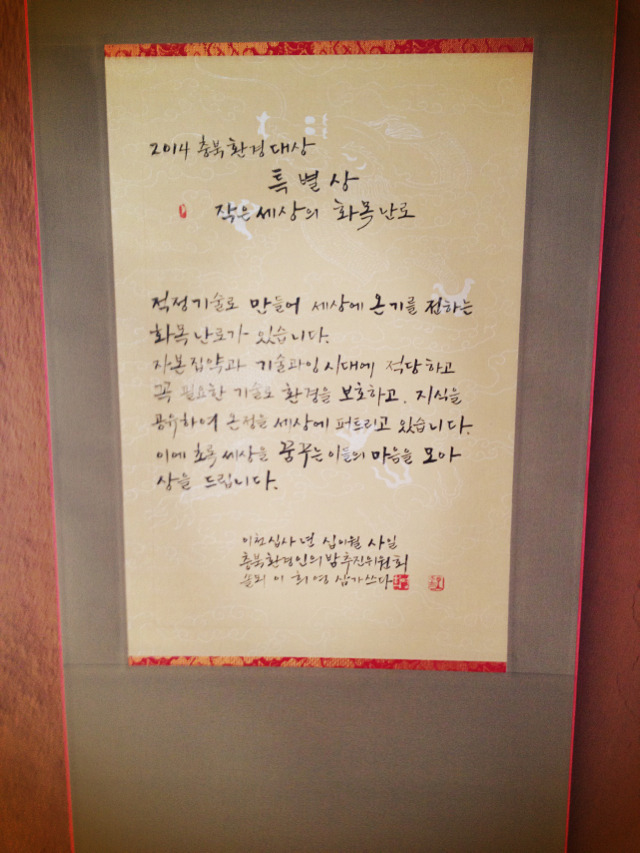 2014 충북환경대상
특별상
작은세상의 화목난로
적정기술로 만들어 세상에 온기를 전하는
화목난로가 있습니다.
자본집약과 기술과잉시대에 적당하고
꼭 필요한 기술로 환경을 보호하고, 지식을
공유하며 온정을 세상에 퍼트리고 있습니다.
이에 초록세상을 꿈꾸는 이들의 마음을 모아
상을 드립니다.
이천십사년 십이월 사일
충북환경인의밤추진위원회
이희영 삼가쓰다